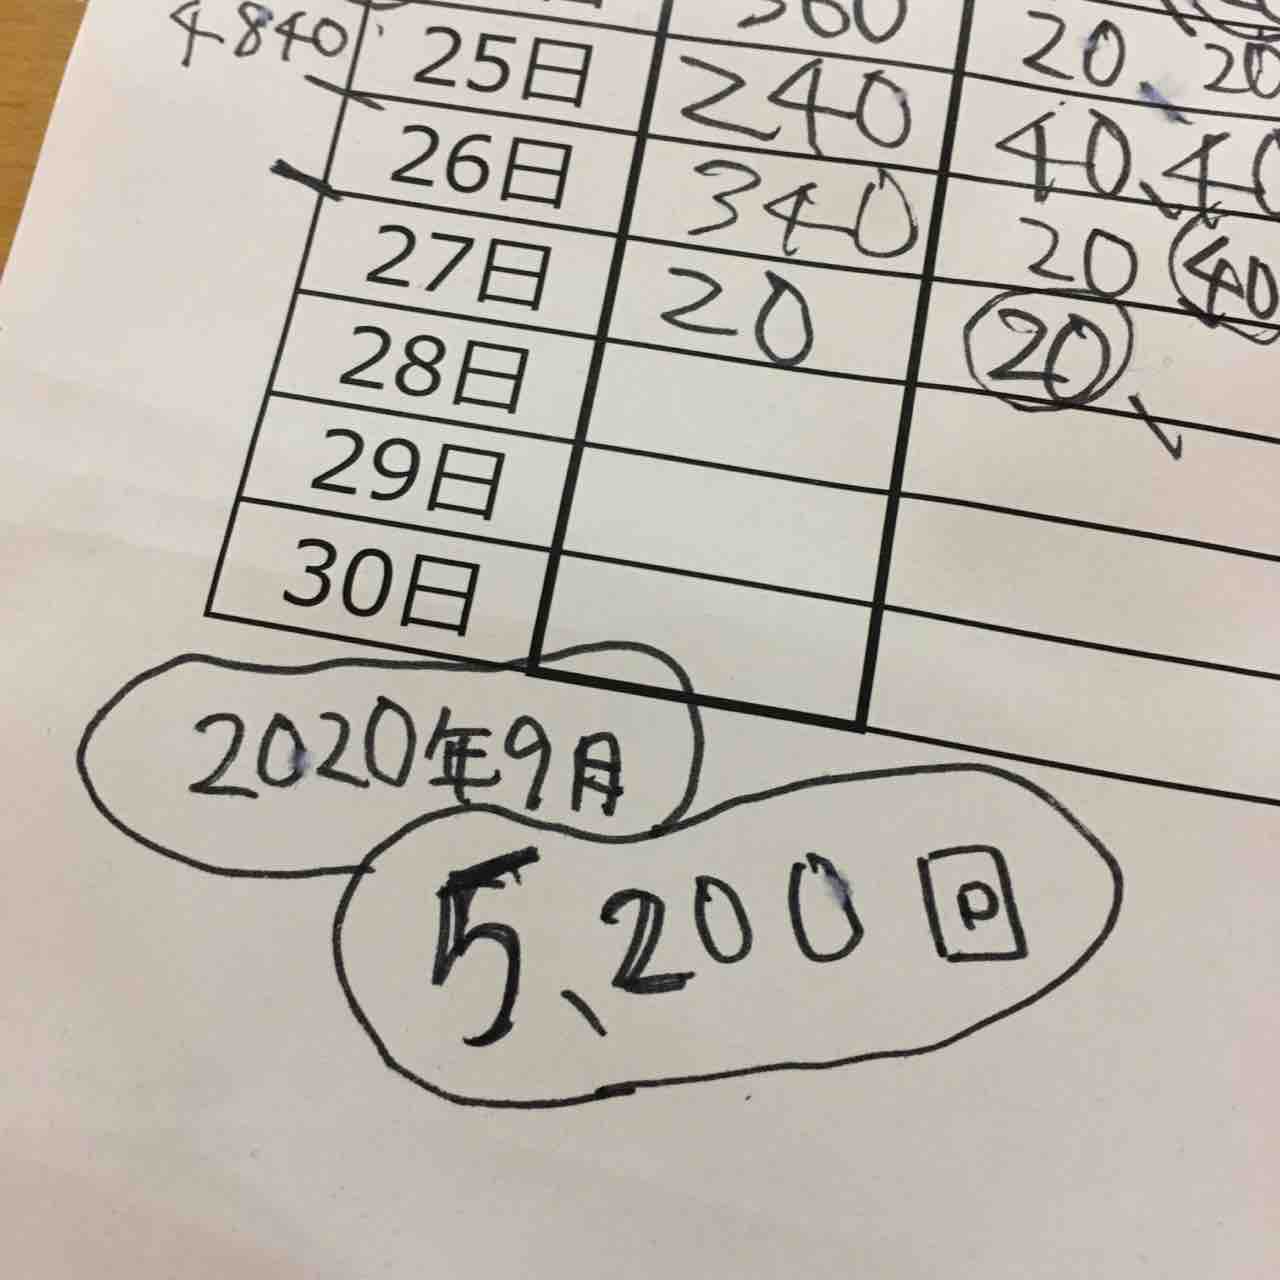 4840 25日 240 20、20
26日 340 40、40
27日 20 20 40
28日 20、
29日
30日
2020年9月
5、200回